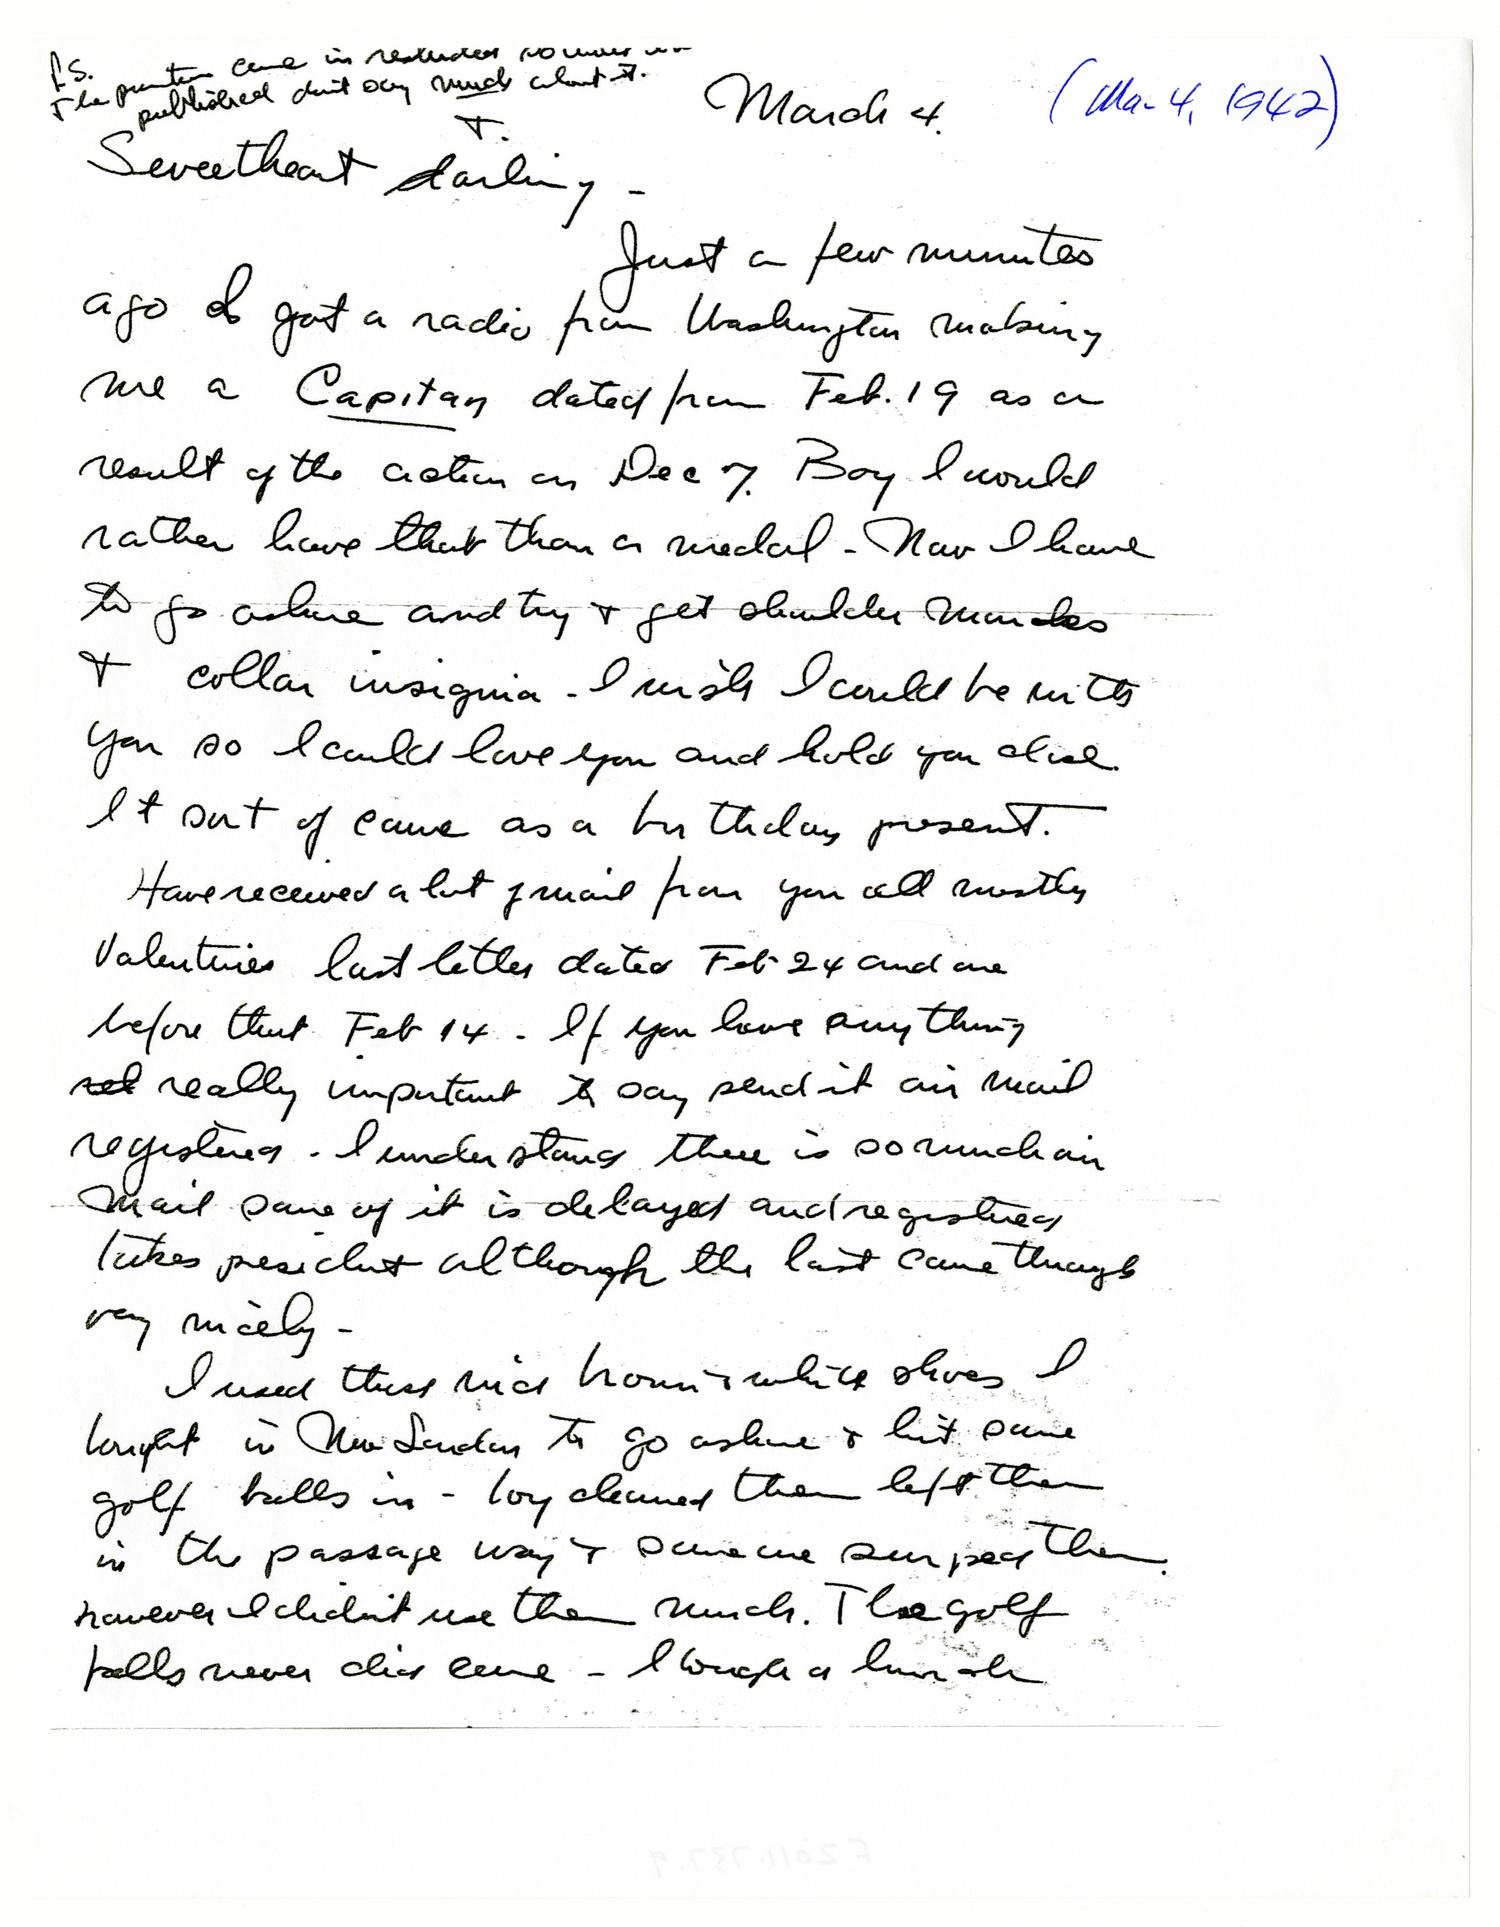 P.S.
The promotion came in restricted so until it is
published don't say much about it.
T.
March 4.
(Mar 4, 1942)
Sweetheart darling -
Just a few minutes
ago I got a radio from Washington making
me a Captain dated from Feb. 19 as a
result of the action on Dec 7. Boy I would
rather have that than a medal - Now I have
to go ashore and try + get shoulder marks
+ collar insignia - I wish I could be with
you so I could love you and hold you close.
It sort of came as a birthday present.
Have received a lot of mail from you all mostly
Valentines last letter dated Feb 24 and one
before that Feb 14 - If you have anything
really important to say send it air mail
registered - I understand there is so much air
mail some of it is delayed and registered
takes president although the last came through
very nicely -
I used those nice brown + white shoes I
bought in New London to go ashore + hit some
golf balls in - boy cleaned them left them
in the passage way + someone swiped them.
however I didn't use them much. The golf
balls never did come - I bought a